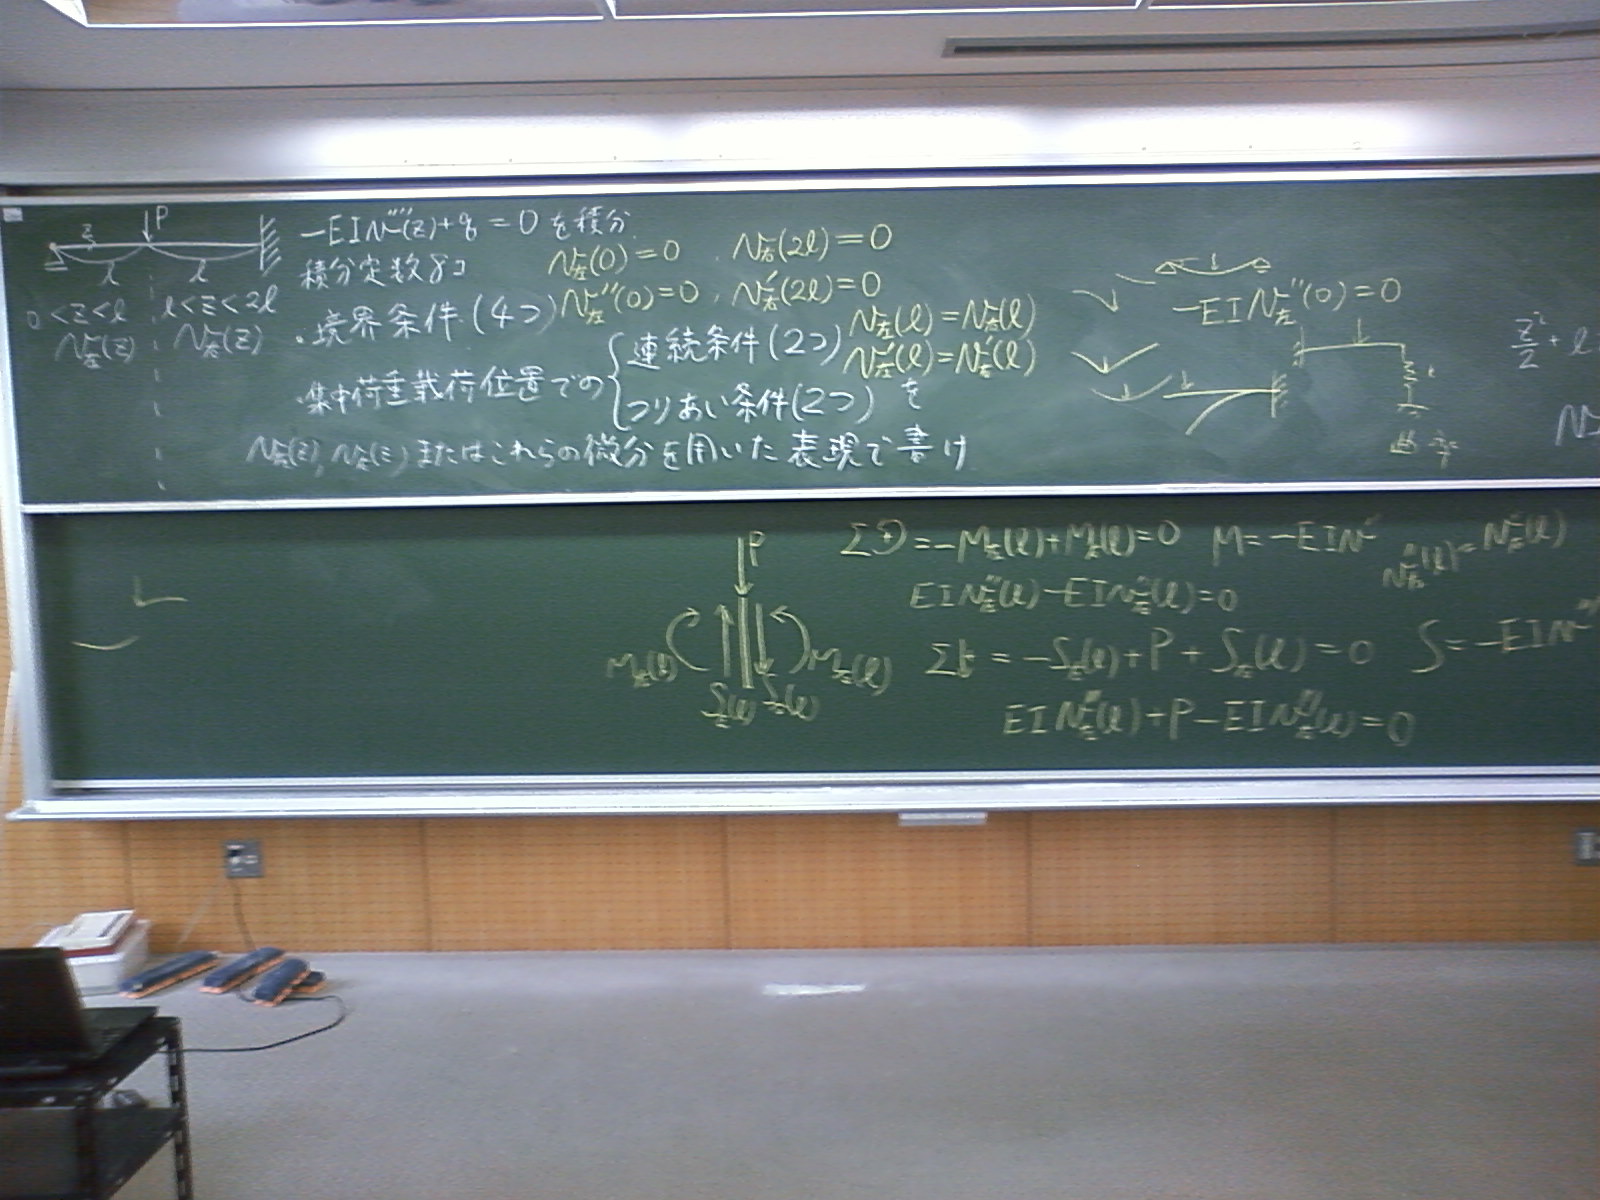 P
z
l l
0<z<l l<z<2l
v左(z) v右(z)
-EIv''''(z)+q=0を積分
積分定数8コ
・境界条件(4つ)
v左(0)=0, v右(2l)=0
v左''(0)=0, v右'(2l)=0
・集中荷重載荷位置での
連続条件(2つ)
v左(l)=v右(l)
v左'(l)=v右'(l)
つりあい条件(2つ)を
v左(z), v右(z)またはこれらの微分を用いた表現で書け
-EIv左''(0)=0
z²/2+l
P
M左(l) M右(l)
S左(l) S右(l)
=-M左(l)+M右(l)=0 M=-EIv''
v左''(l)=v右''(l)
EIv左''(l)-EIv右''(l)=0
=-S左(l)+P+S右(l)=0 S=-EIv'''
EIv左'''(l)+P-EIv右'''(l)=0